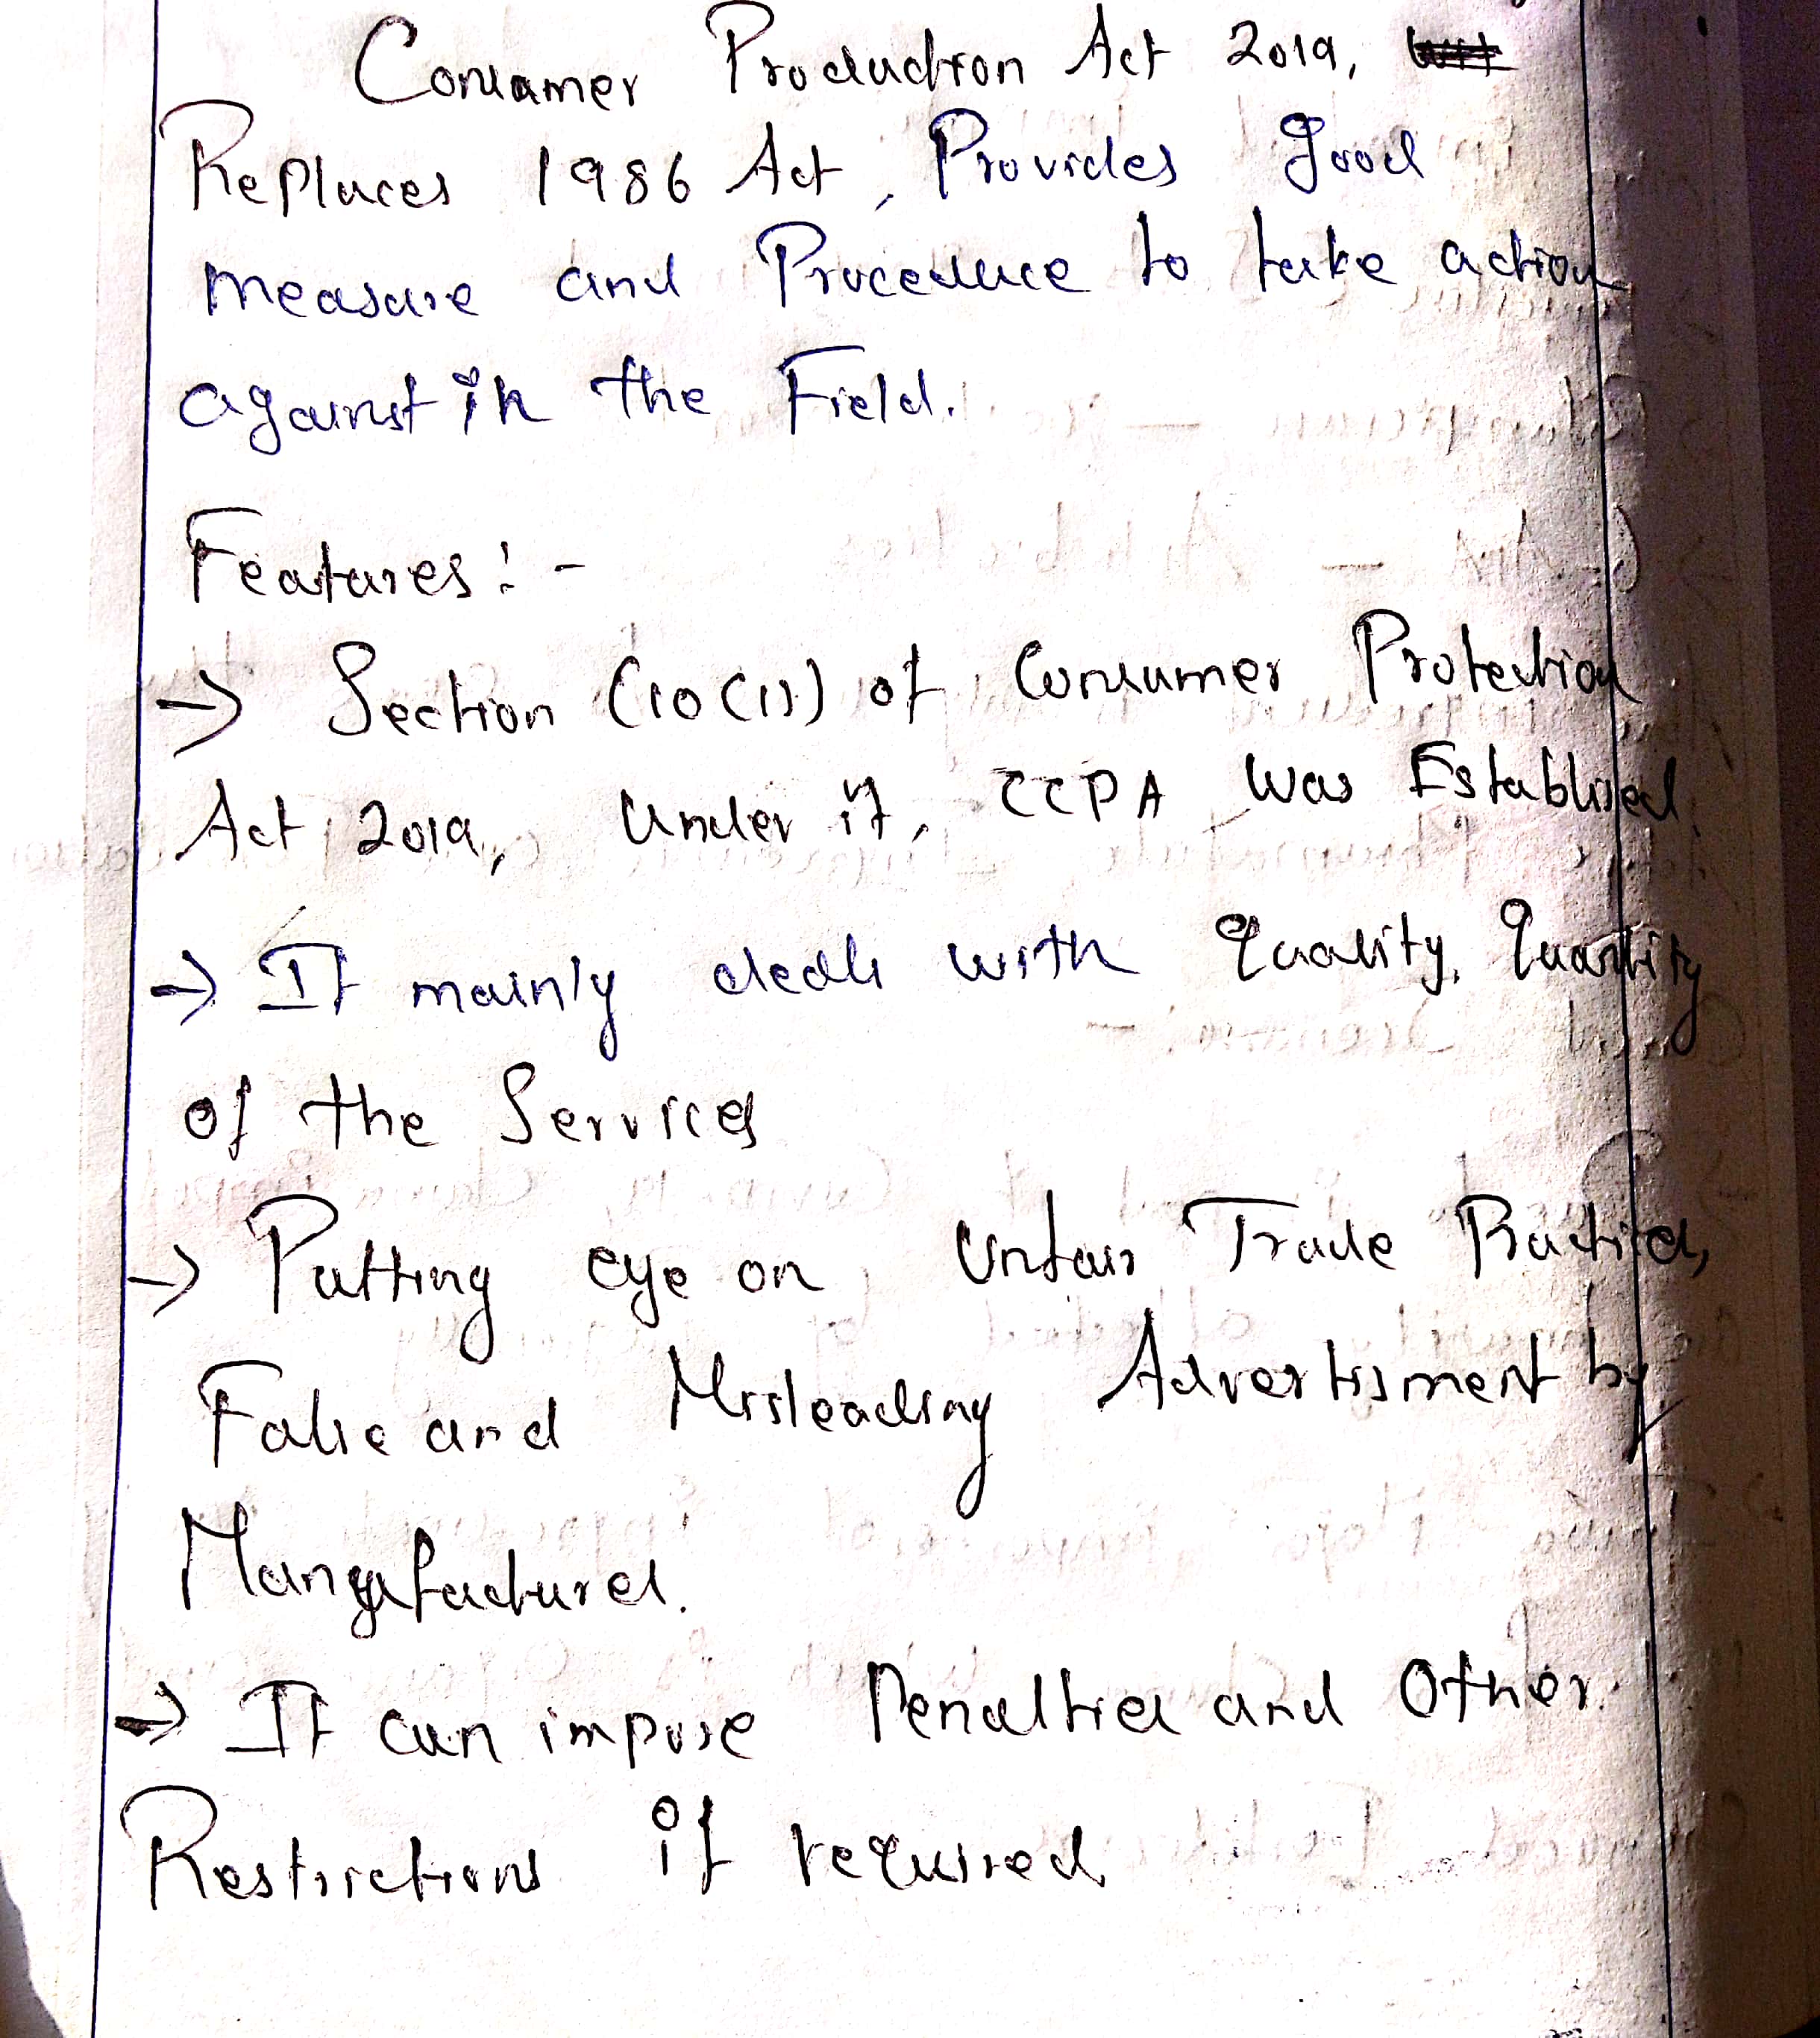 Consumer Production Act 2019,
Replaces 1986 Act, Provides good
measure and Proceduce to take action
against in the Field.
Features:-
→ Section (10(1)) of Consumer Protection
Act, 2019, Under it, CCPA was Establised
→ It mainly deals with Quality, Quantity
of the Services
→ Putting eye on Unfair Trade Practices,
False and Misleading Advertisment by
Manyufactures.
→ It can impose Penalties and Other
Restrictions if required